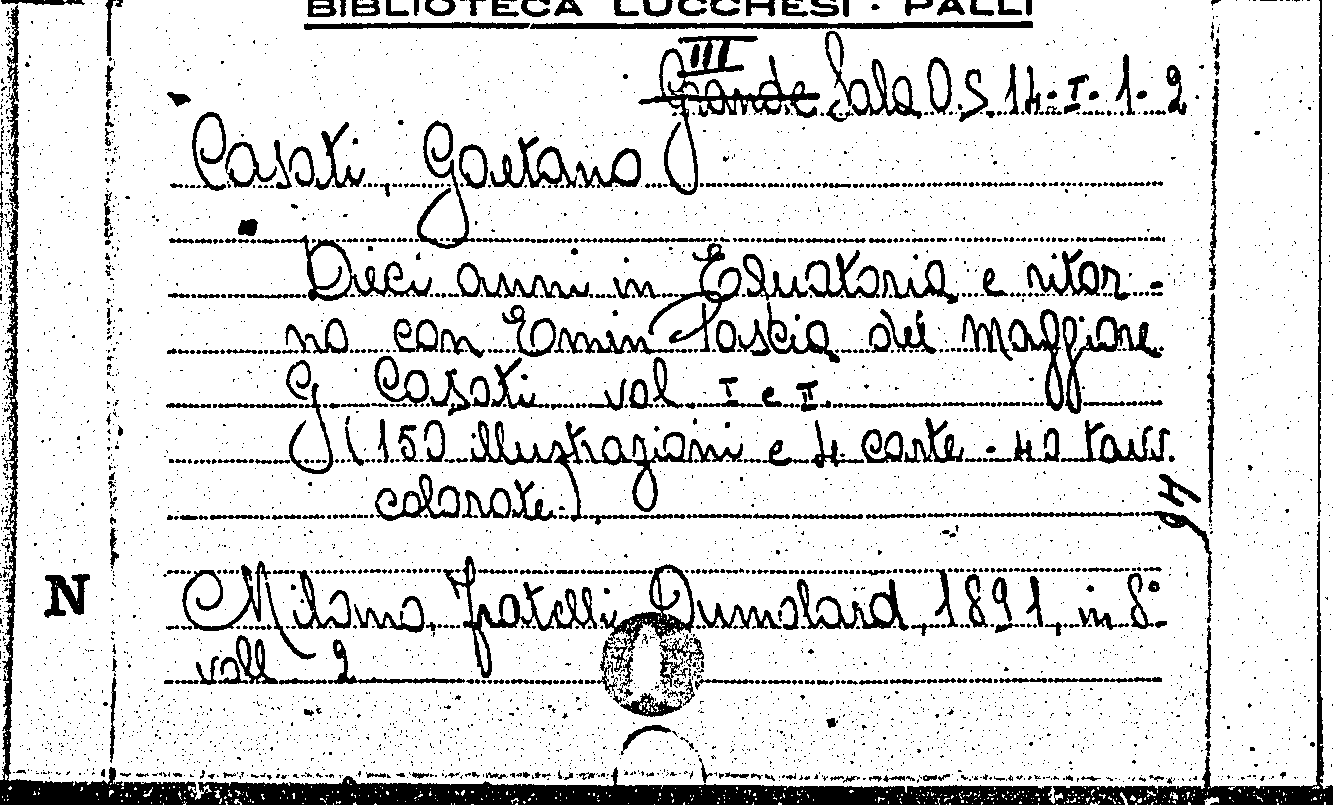 BIBLIOTECA LUCCHESI · PALLI
III
Grande Sala O.S. 14·I·1·2
Casati, Gaetano
Dieci anni in Equatoria e ritor-
no con Emin Pascia del maggiore
G. Casati vol. I e II.
(150 illustrazioni e 4 carte - 40 tavv.
colorate.).
94
N
Milano, Fratelli Dumolard, 1891, in 8°-
voll 2